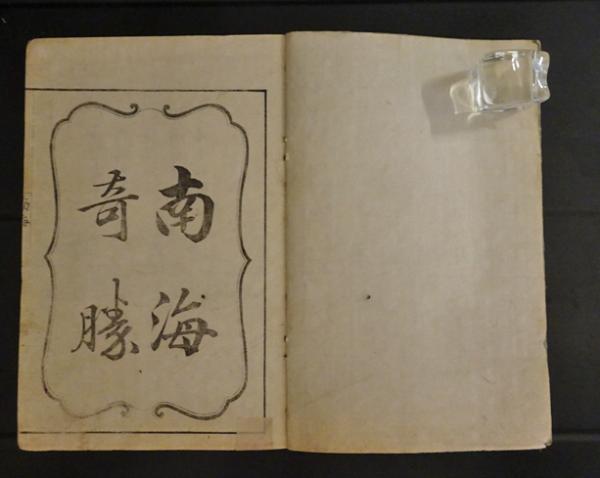 南海
奇勝